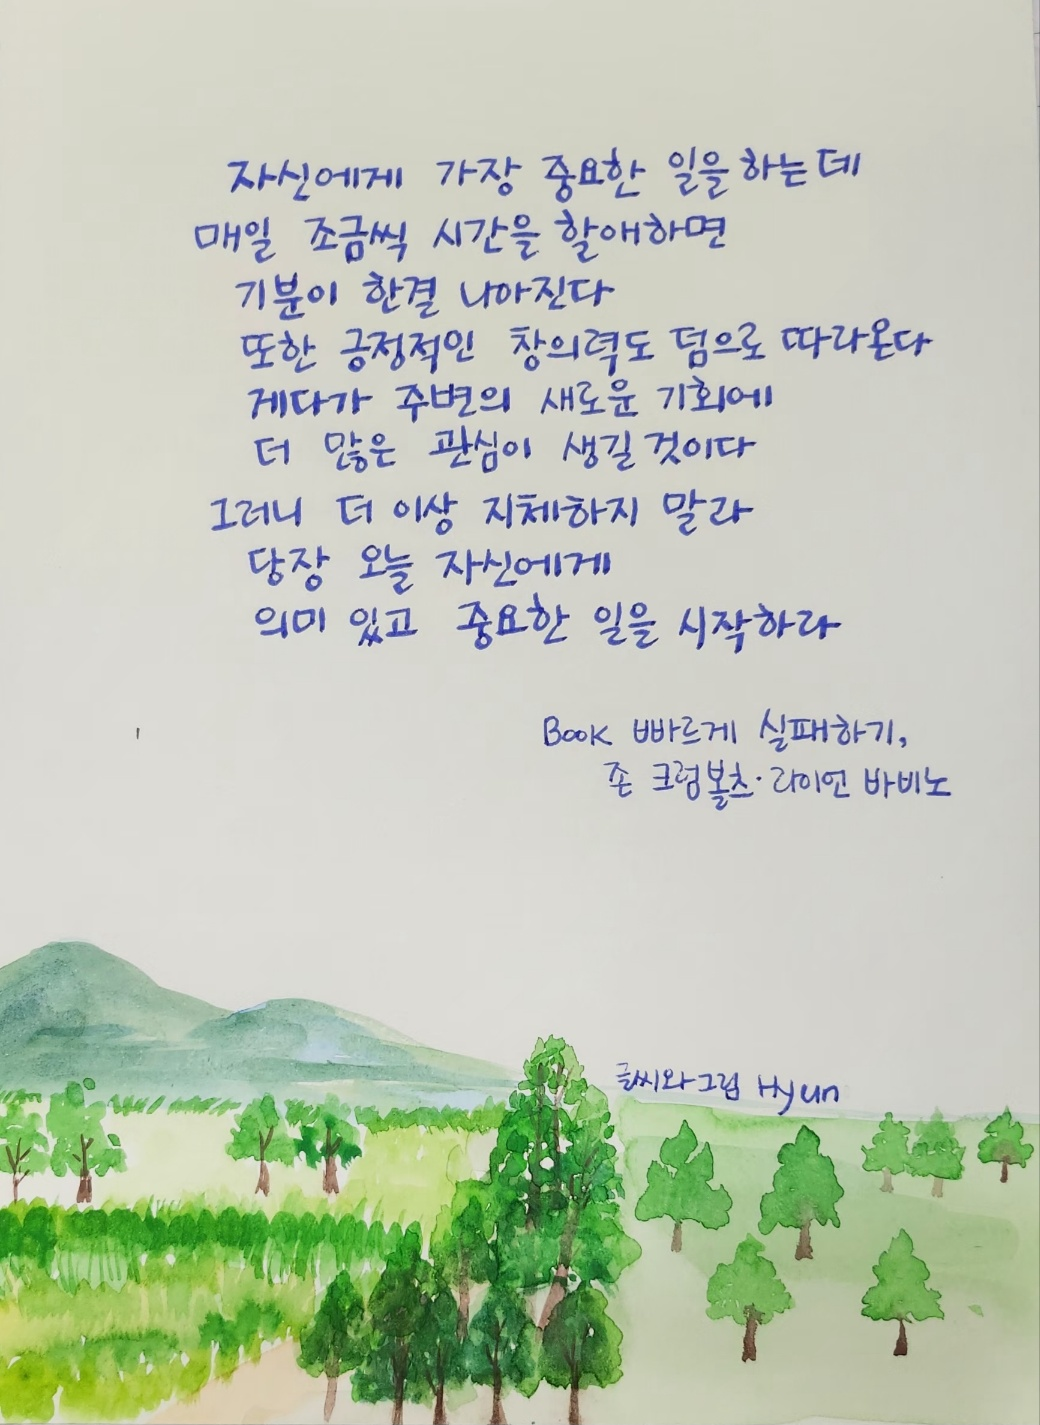 자신에게 가장 중요한 일을 하는데
매일 조금씩 시간을 할애하면
기분이 한결 나아진다
또한 긍정적인 창의력도 덤으로 따라온다
게다가 주변의 새로운 기회에
더 많은 관심이 생길 것이다
그러니 더 이상 지체하지 말라
당장 오늘 자신에게
의미 있고 중요한 일을 시작하라
Book 빠르게 실패하기,
존 크럼볼츠·라이언 바비노
글씨와 그림 Hyun